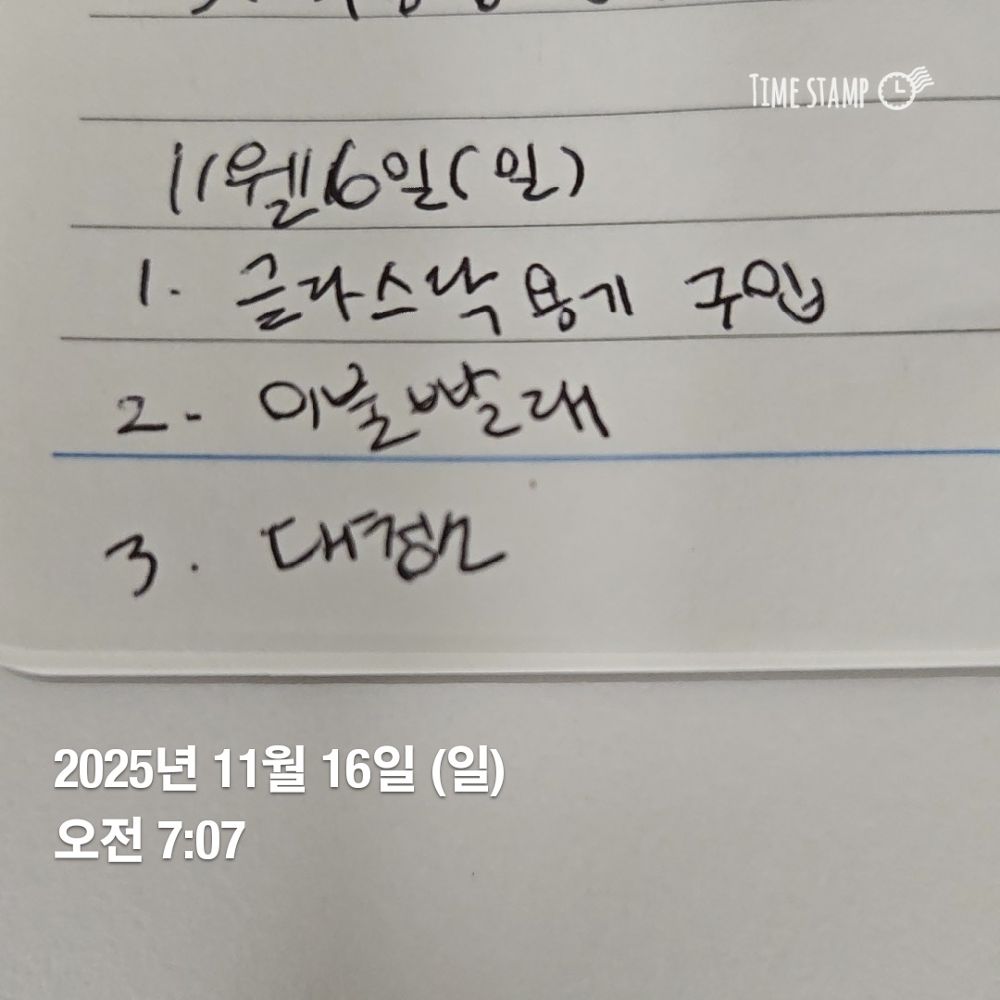 TIME STAMP
11월16일(일)
1. 글라스락 용기 구입
2. 이불빨래
3.
2025년 11월 16일 (일)
오전 7:07